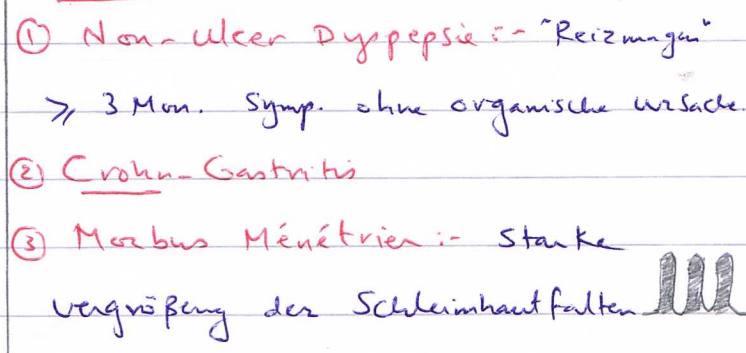 ① Non-Ulcer Dyspepsie :- "Reizmagen"
≥ 3 Mon. Symp. ohne organische Ursache.
② Crohn-Gastritis
③ Morbus Ménétrier :- Starke
vergrößeng der Schleimhautfalten